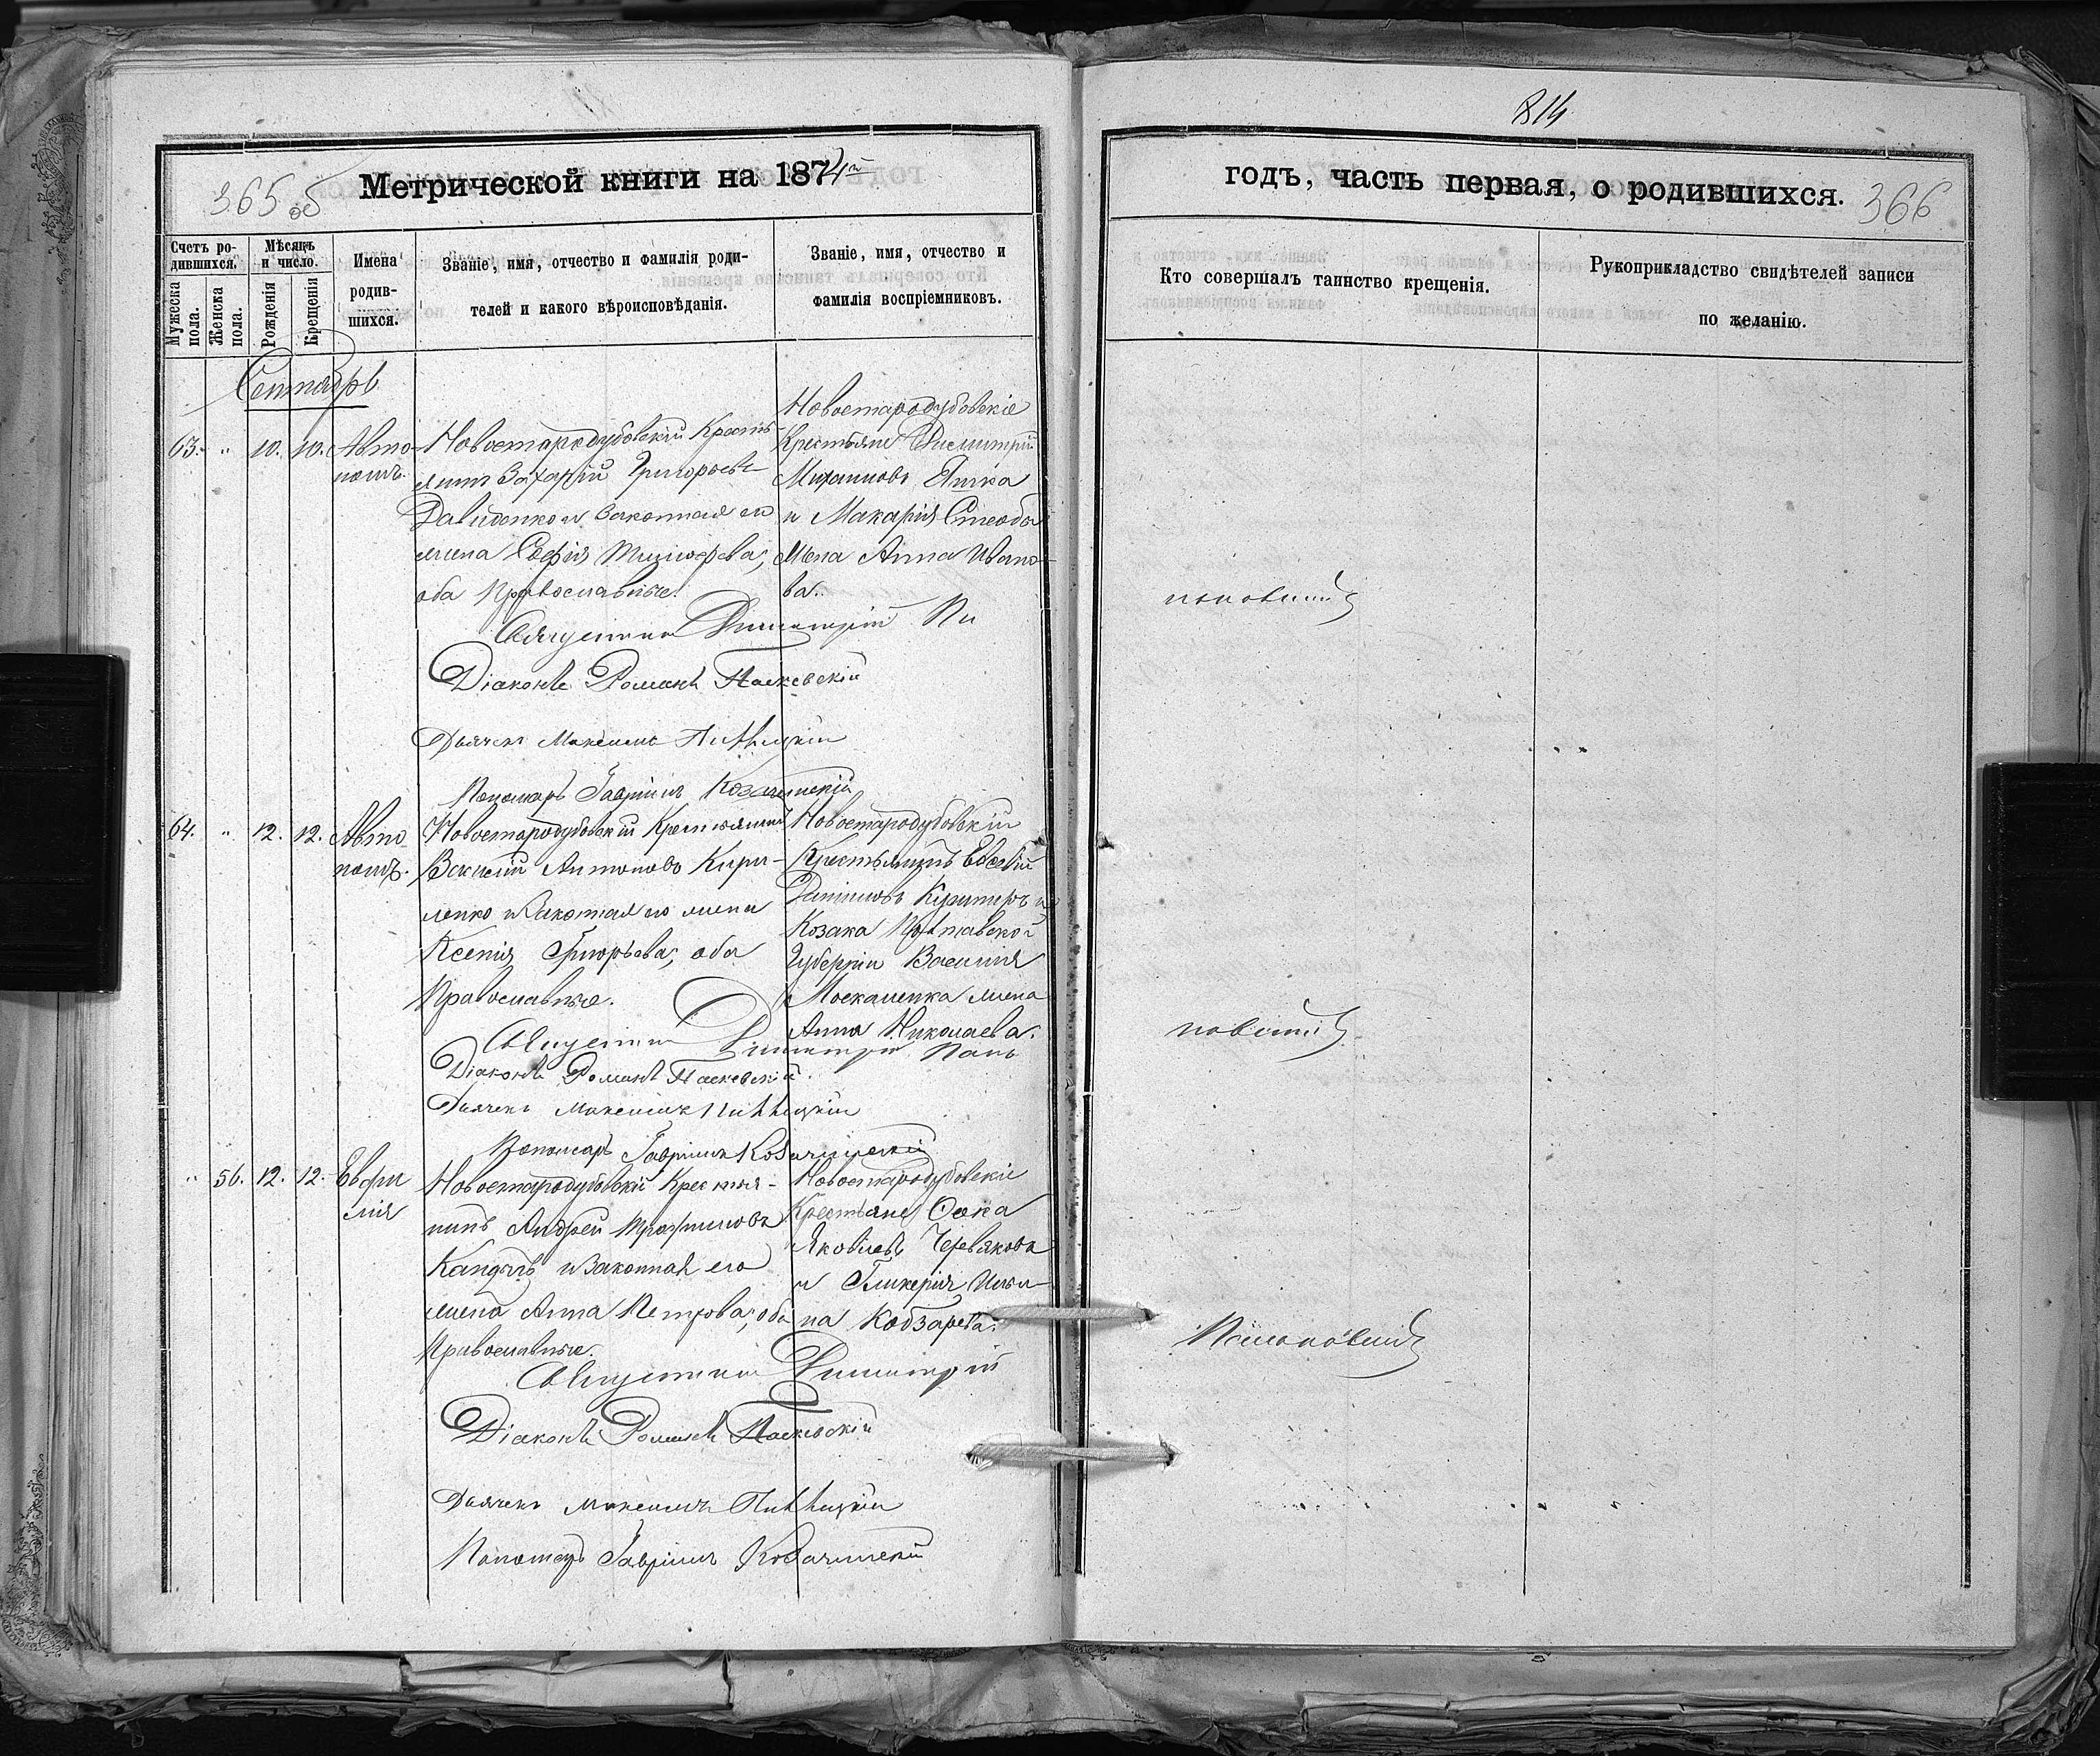 814
365 об
Метрической книги на 1874й
годъ, часть первая, о родившихся.
366
Счетъ ро-
дившихся.
Мужеска
пола.
Женска
пола.
Мѣсяцъ
и число.
Рожденія
Крещенія
Имена
родив-
шихся.
Званіе, имя, отчество и фамилія роди-
телей и какого вѣроисповѣданія.
Званіе, имя, отчество и
фамилія воспріемниковъ.
Кто совершалъ таинство крещенія.
Рукоприкладство свидѣтелей записи
по желанію.
Сентябрь
63. " 10. 10. Авто-
номъ.
Новостародубовскій Кресть-
янинъ Захарій Григорьевъ
Давиденко и законная его
жена Софія
оба Православные.
Новостародубовскіе
Крестьяне Димитрій
Михаиловъ
и Макарія
жена Анна Ивано-
ва.
Священникъ Димитрій
Діаконъ Романъ Паскевскій
Дьячекъ Максимъ
Пономарь Гавріилъ Козачинскій
64. " 12. 12. Авто
номъ.
Новостародубовскій Крестьянинъ
Василій Антоновъ Кири-
ленко и законная его жена
Ксенія Григорьева, оба
Православные.
Новостародубовскій
Крестьянинъ Евсевій
Даниловъ и
Козака Полтавской
Губерніи Василія
Москаленка жена
Анна Николаева.
Священникъ Димитрій
Діаконъ Романъ Паскевскій
Дьячекъ Максимъ
Пономарь Гавріилъ Козачинскій
" 56. 12. 12. Евфи
мія
Новостародубовскій Крестья-
нинъ Андрей Трофимовъ
и законная его
жена Анна Петрова, оба
Православные.
Новостародубовскіе
Крестьяне
Яковлевъ Червяковъ
и Гликерія Ильи-
на Кобзарева.
Священникъ Димитрій
Діаконъ Романъ Паскевскій
Дьячекъ Максимъ
Пономарь Гавріилъ Козачинскій